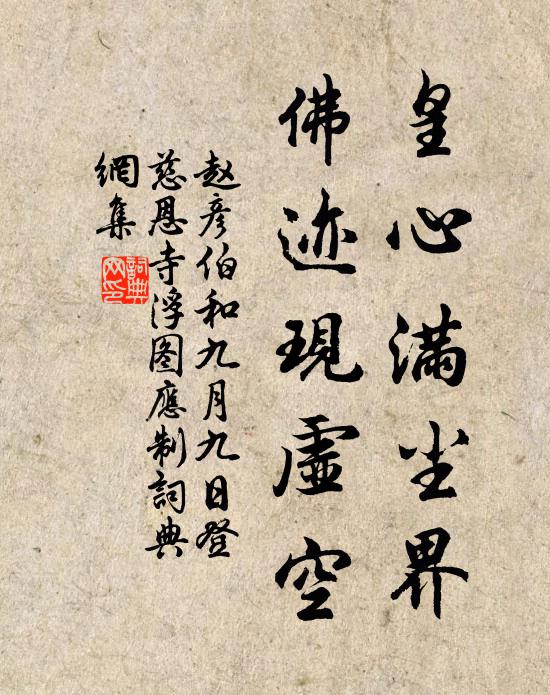 皇心满尘界
佛迹現虚空
赵彦伯和九月九日登
慈恩寺浮图應制詞典
網集
詞典網印